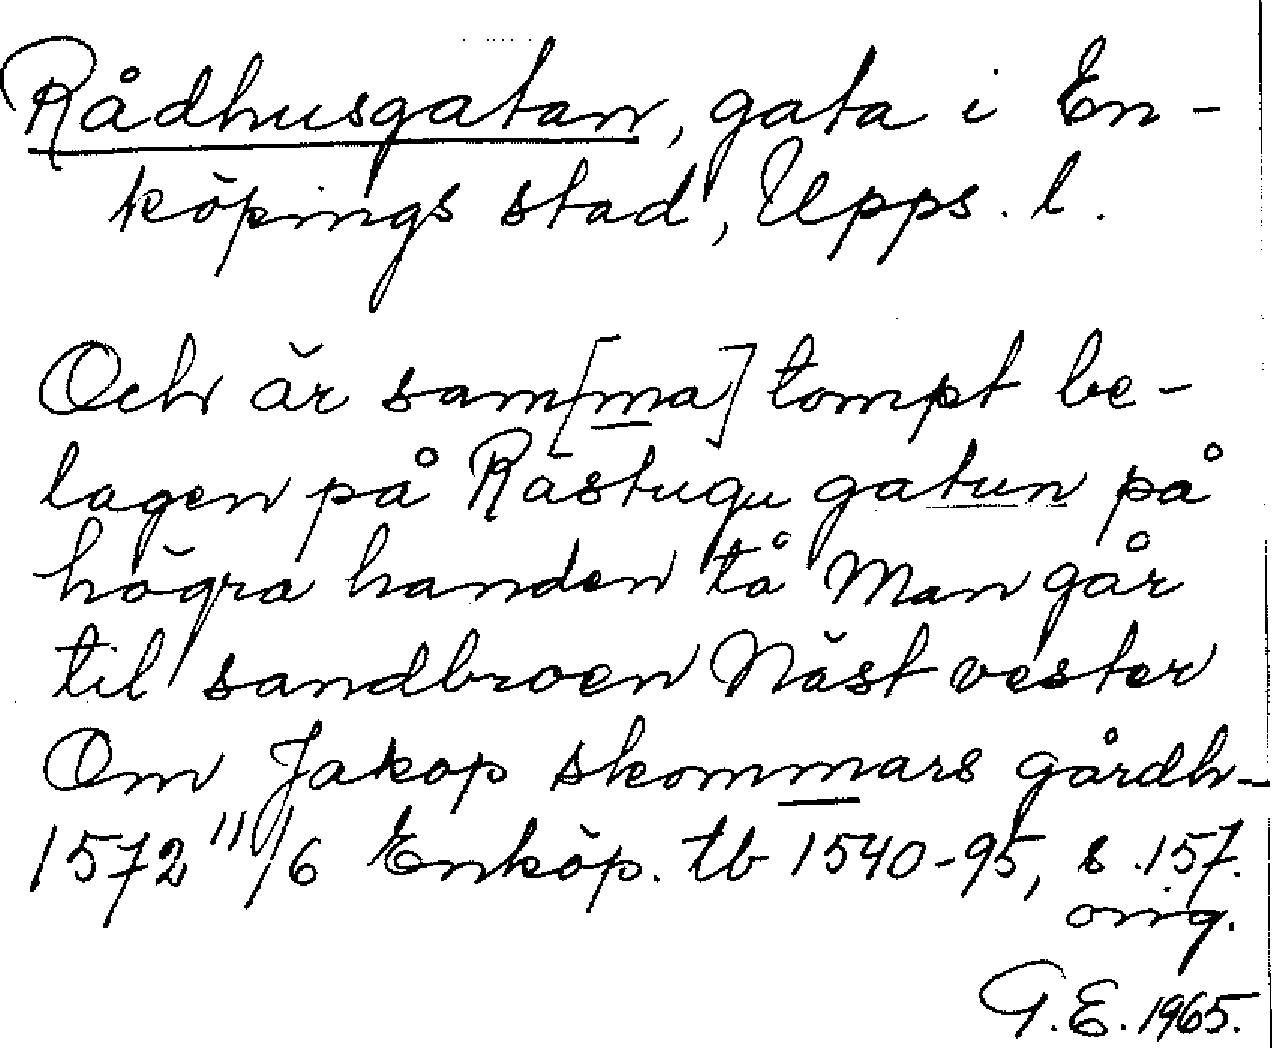 Rådhusgatan, gata i En-
köpings stad, Upps. l.
Och är sam[ma] tompt be-
lagen på Råstugu gatun på
högra handen tå Man går
til sandbroen Näst vester
Om Jakop skommars gårdh-
1572 11/6 Enköp. tb 1540-95, s. 157.
orig.
G.E. 1965.